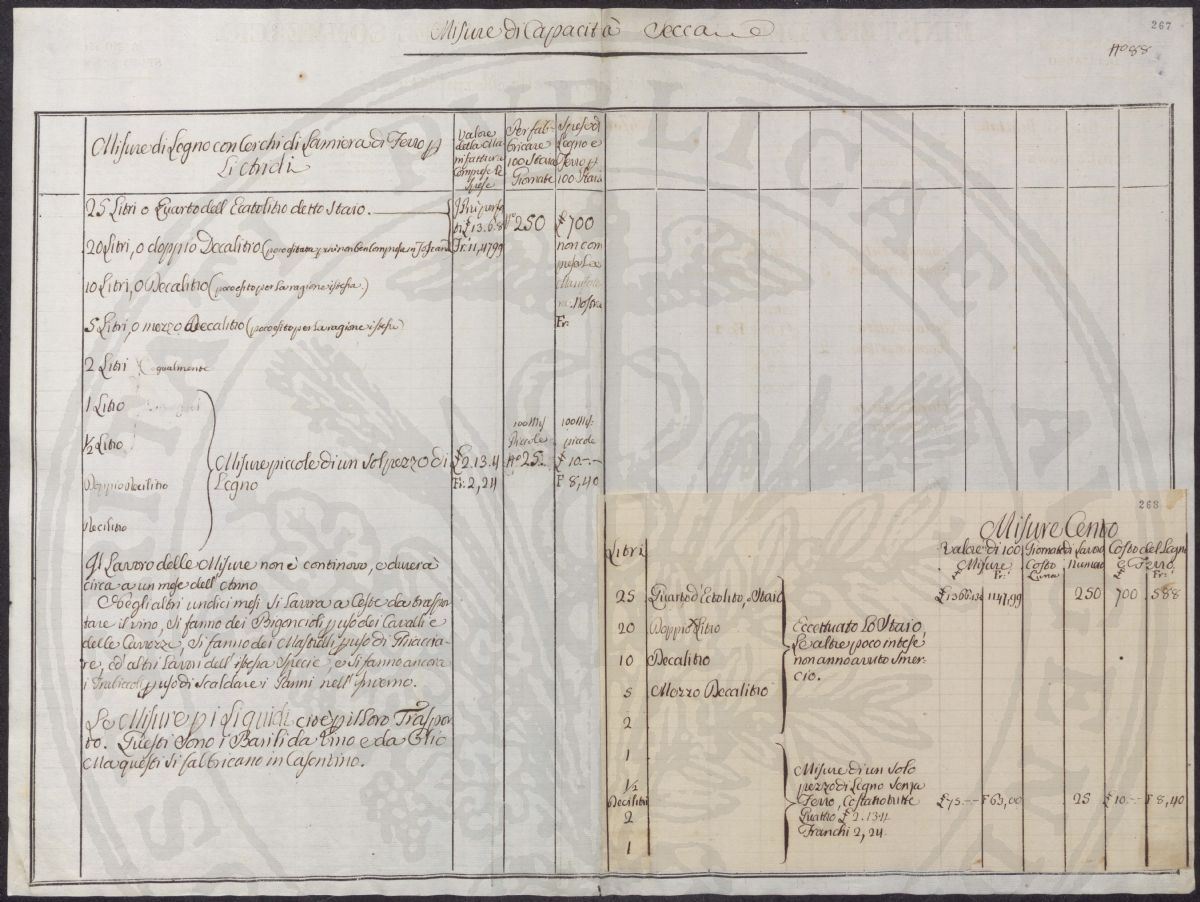 267
Misure di Capacità Seccane
N.o 88
Misure di Legno con Cerchi di Lamiera di Ferro p
Li Aridi
Valore
della Ma
nifatture
Comprese Le
Spese
Per fab-
bricare
100 Stara
Giornate
Spese di
Legno e
Ferro p
100 Staia
25 Litri o Quarto dell Ecatolitro detto Staio.
in £ 13.6.8
Fr. 11,4799
N.o 250
£ 700
non com
presa La
nostra
Fr.
20 Litri, o doppio Decalitro (poco
non ben Compresa in Toscana
10 Litri, o Decalitro (poco esito per la ragione istessa.)
5 Litri, o mezzo Decalitro (poco esito per la ragione istessa)
2 Litri egualmente
1 Litro
½ Litro
Doppio decilitro
decilitro
Misure piccole di un sol pezzo di
Legno
£ 2.13.4
Fr. 2,24
100 Mis:
Piccole
N.o 25.
100 Mis:
piccole
£ 10.--
F 8,40
Il Lavoro delle Misure non è continovo, e durerà
circa a un mese dell'Anno
Negli altri undici mesi si Lavora a Ceste da traspor
tare il vino, si fanno dei Bigoncioli p uso dei Cavalli e
delle Carrozze, si fanno dei Mastelli p uso di Ghiaccia
re, ed altri Lavori dell'istessa Specie, e si fanno ancora
i Trabiccoli p uso di Scaldare i Panni nell'Inverno.
Le Misure p i Liquidi cioè p il Loro Traspor
to. Questi sono i Barili da Vino e da Olio
Ma questi si fabbricano in Casentino.
268
Misure Cento
Litri
Valore di 100
Misure
Fr.
Giornate di Lavoro
Costo
Luna
Numero
Costo del Legn
e Ferro.
Fr.
25 Quarto d'Ectolitro, o Staio
£ 1366.13.4 1147,99 250 700 588
20 Doppio Litro
10 Decalitro
5 Mezzo Decalitro
2
Eccettuato Lo Staio,
Le altre poco intese
non anno avuto Smer-
cio.
1
½
Decilitri
2
1
Misure di un Solo
pezzo di Legno Senza
Ferro, Costano tutte
Quattro £ 2.13.4
Franchi 2,24
£ 75.-- F 63,00 25 £ 10.-- F 8,40